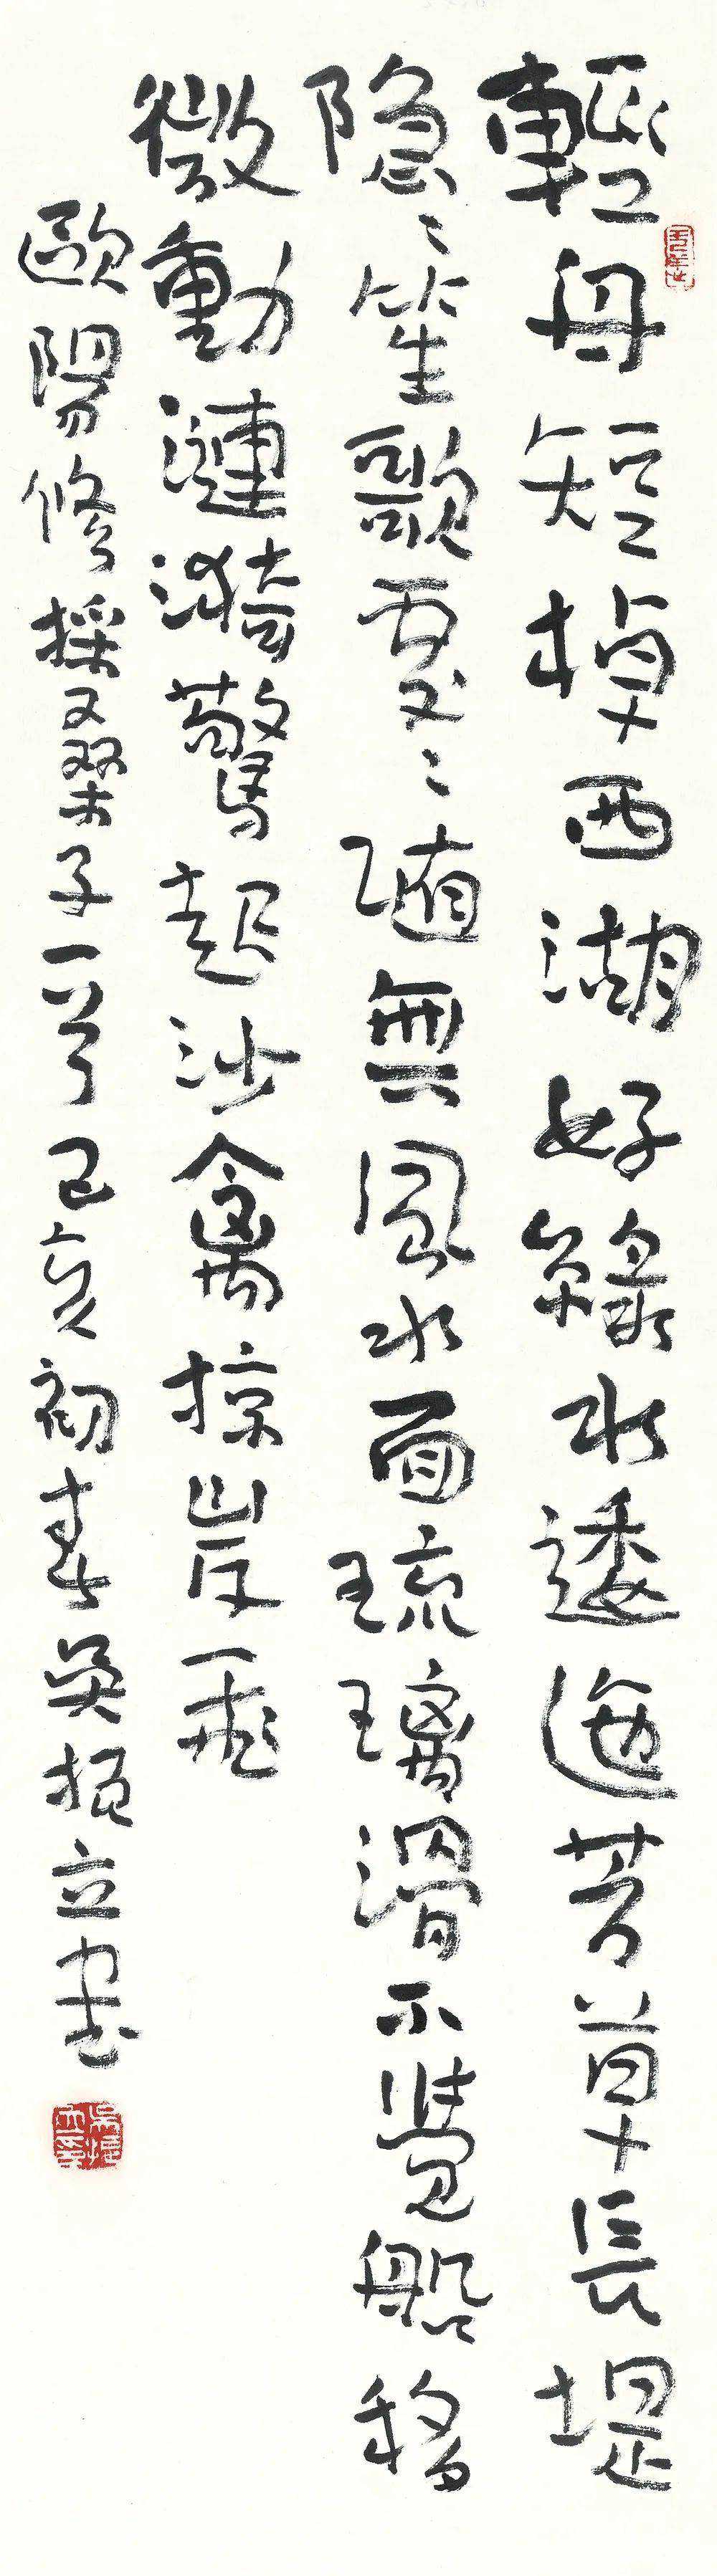 輕舟短棹西湖好綠水逶迤芳草長堤
隐〻笙歌處〻隨無風水面琉璃滑不覺船移
微動漣漪驚起沙禽掠岸飛
歐陽修採桑子一首己亥初春吳振立書